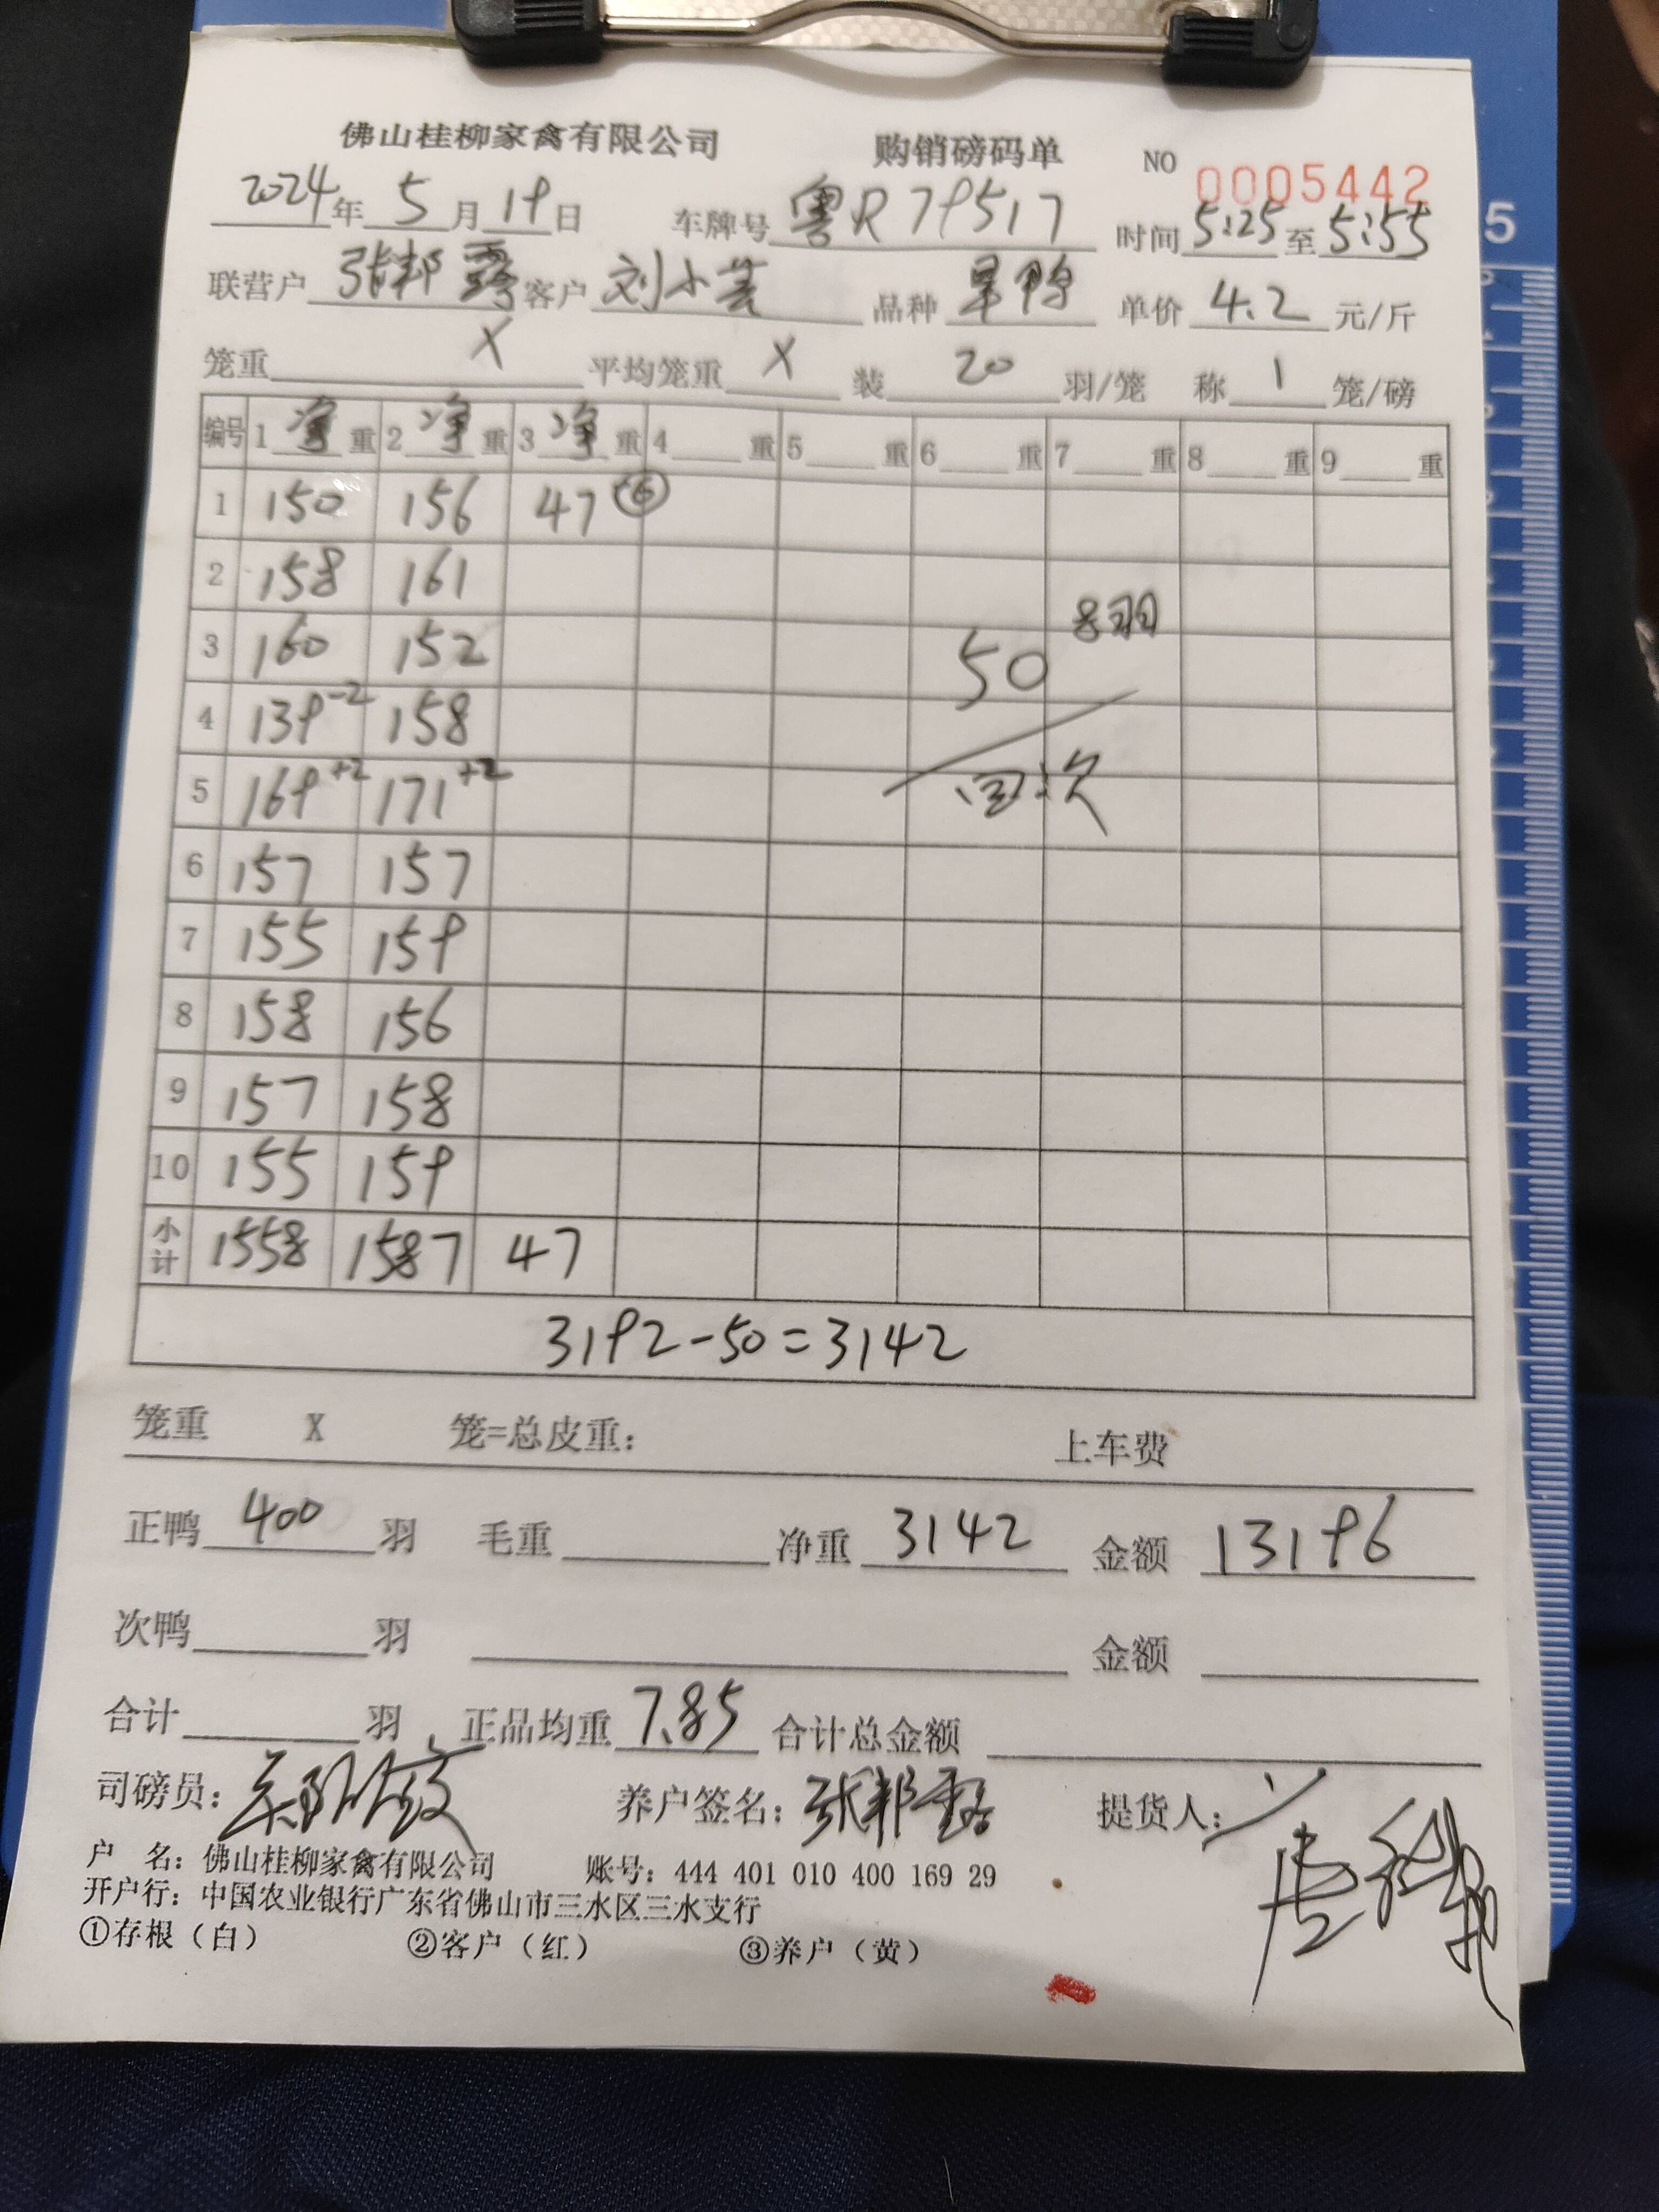 佛山桂柳家禽有限公司 购销磅码单 NO 0005442
2024年5月19日 车牌号 粤R79517 时间 5:25 至 5:55
联营户 张邦露 客户 刘小芸 品种 旱鸭 单价 4.2 元/斤
笼重 X 平均笼重 X 装 20 羽/笼 称 1 笼/磅
编号 1 净 重 2 净 重 3 净 重 4 重 5 重 6 重 7 重 8 重 9 重
1 150 156 47 ⑥
2 158 161
3 160 152
8羽
50
4 139-2 158
5 169+2 171+2
回次
6 157 157
7 155 159
8 158 156
9 157 158
10 155 159
小计 1558 1587 47
3192-50=3142
笼重 X 笼=总皮重: 上车费
正鸭 400 羽 毛重 净重 3142 金额 13196
次鸭 羽 金额
合计 羽 正品均重 7.85 合计总金额
司磅员: 养户签名: 张邦露 提货人:
户 名: 佛山桂柳家禽有限公司 账号: 444 401 010 400 169 29
开户行: 中国农业银行广东省佛山市三水区三水支行
①存根（白） ②客户（红） ③养户（黄）
5